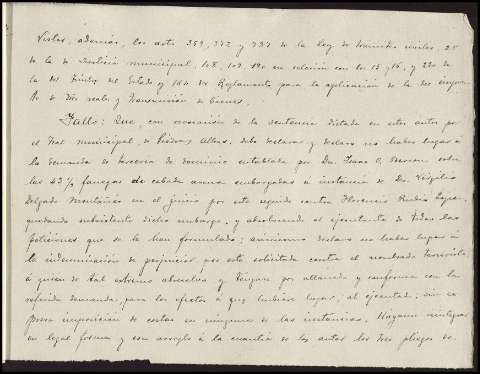 Vistos, además, los arts 359, 372 y 737 de la Ley de trámites civiles, 25
de la de Justicia municipal, 108, 109, 190 en relación con los 15 y 16, y 220 de
la del Timbre del Estado y 164 del Reglamento para la aplicación de la del impues
to de Dros reales y transmisión de bienes.
Fallo: Que, con revocación de la sentencia dictada en estos autos por
el Tral municipal de Piedras Albas, debo declarar y declaro no haber lugar á
la demanda de tercería de dominio entablada por Dn. Isaac sobre
las 43 ½ fanegas de cebada embargadas á instancia de Dn. Virgilio
Delgado Montañés en el juicio por este seguido contra Florencio Rubio
quedando subsistente dicho embargo, y absolviendo al ejecutante de todas las
peticiones que se le han formulado; asimismo declaro no haber lugar á
la indemnización de perjuicios por este solicitada contra el nombrado tercerista
á quien de tal extremo absuelvo y tengase por allanado y conforme con la
referida demanda, para los efectos á que hubiere lugar, al ejecutado; sin ex
presa imposición de costas en ninguna de las instancias. Hagase reintegrar
en legal forma y con arreglo á la cuantia de los autos los tres pliegos de